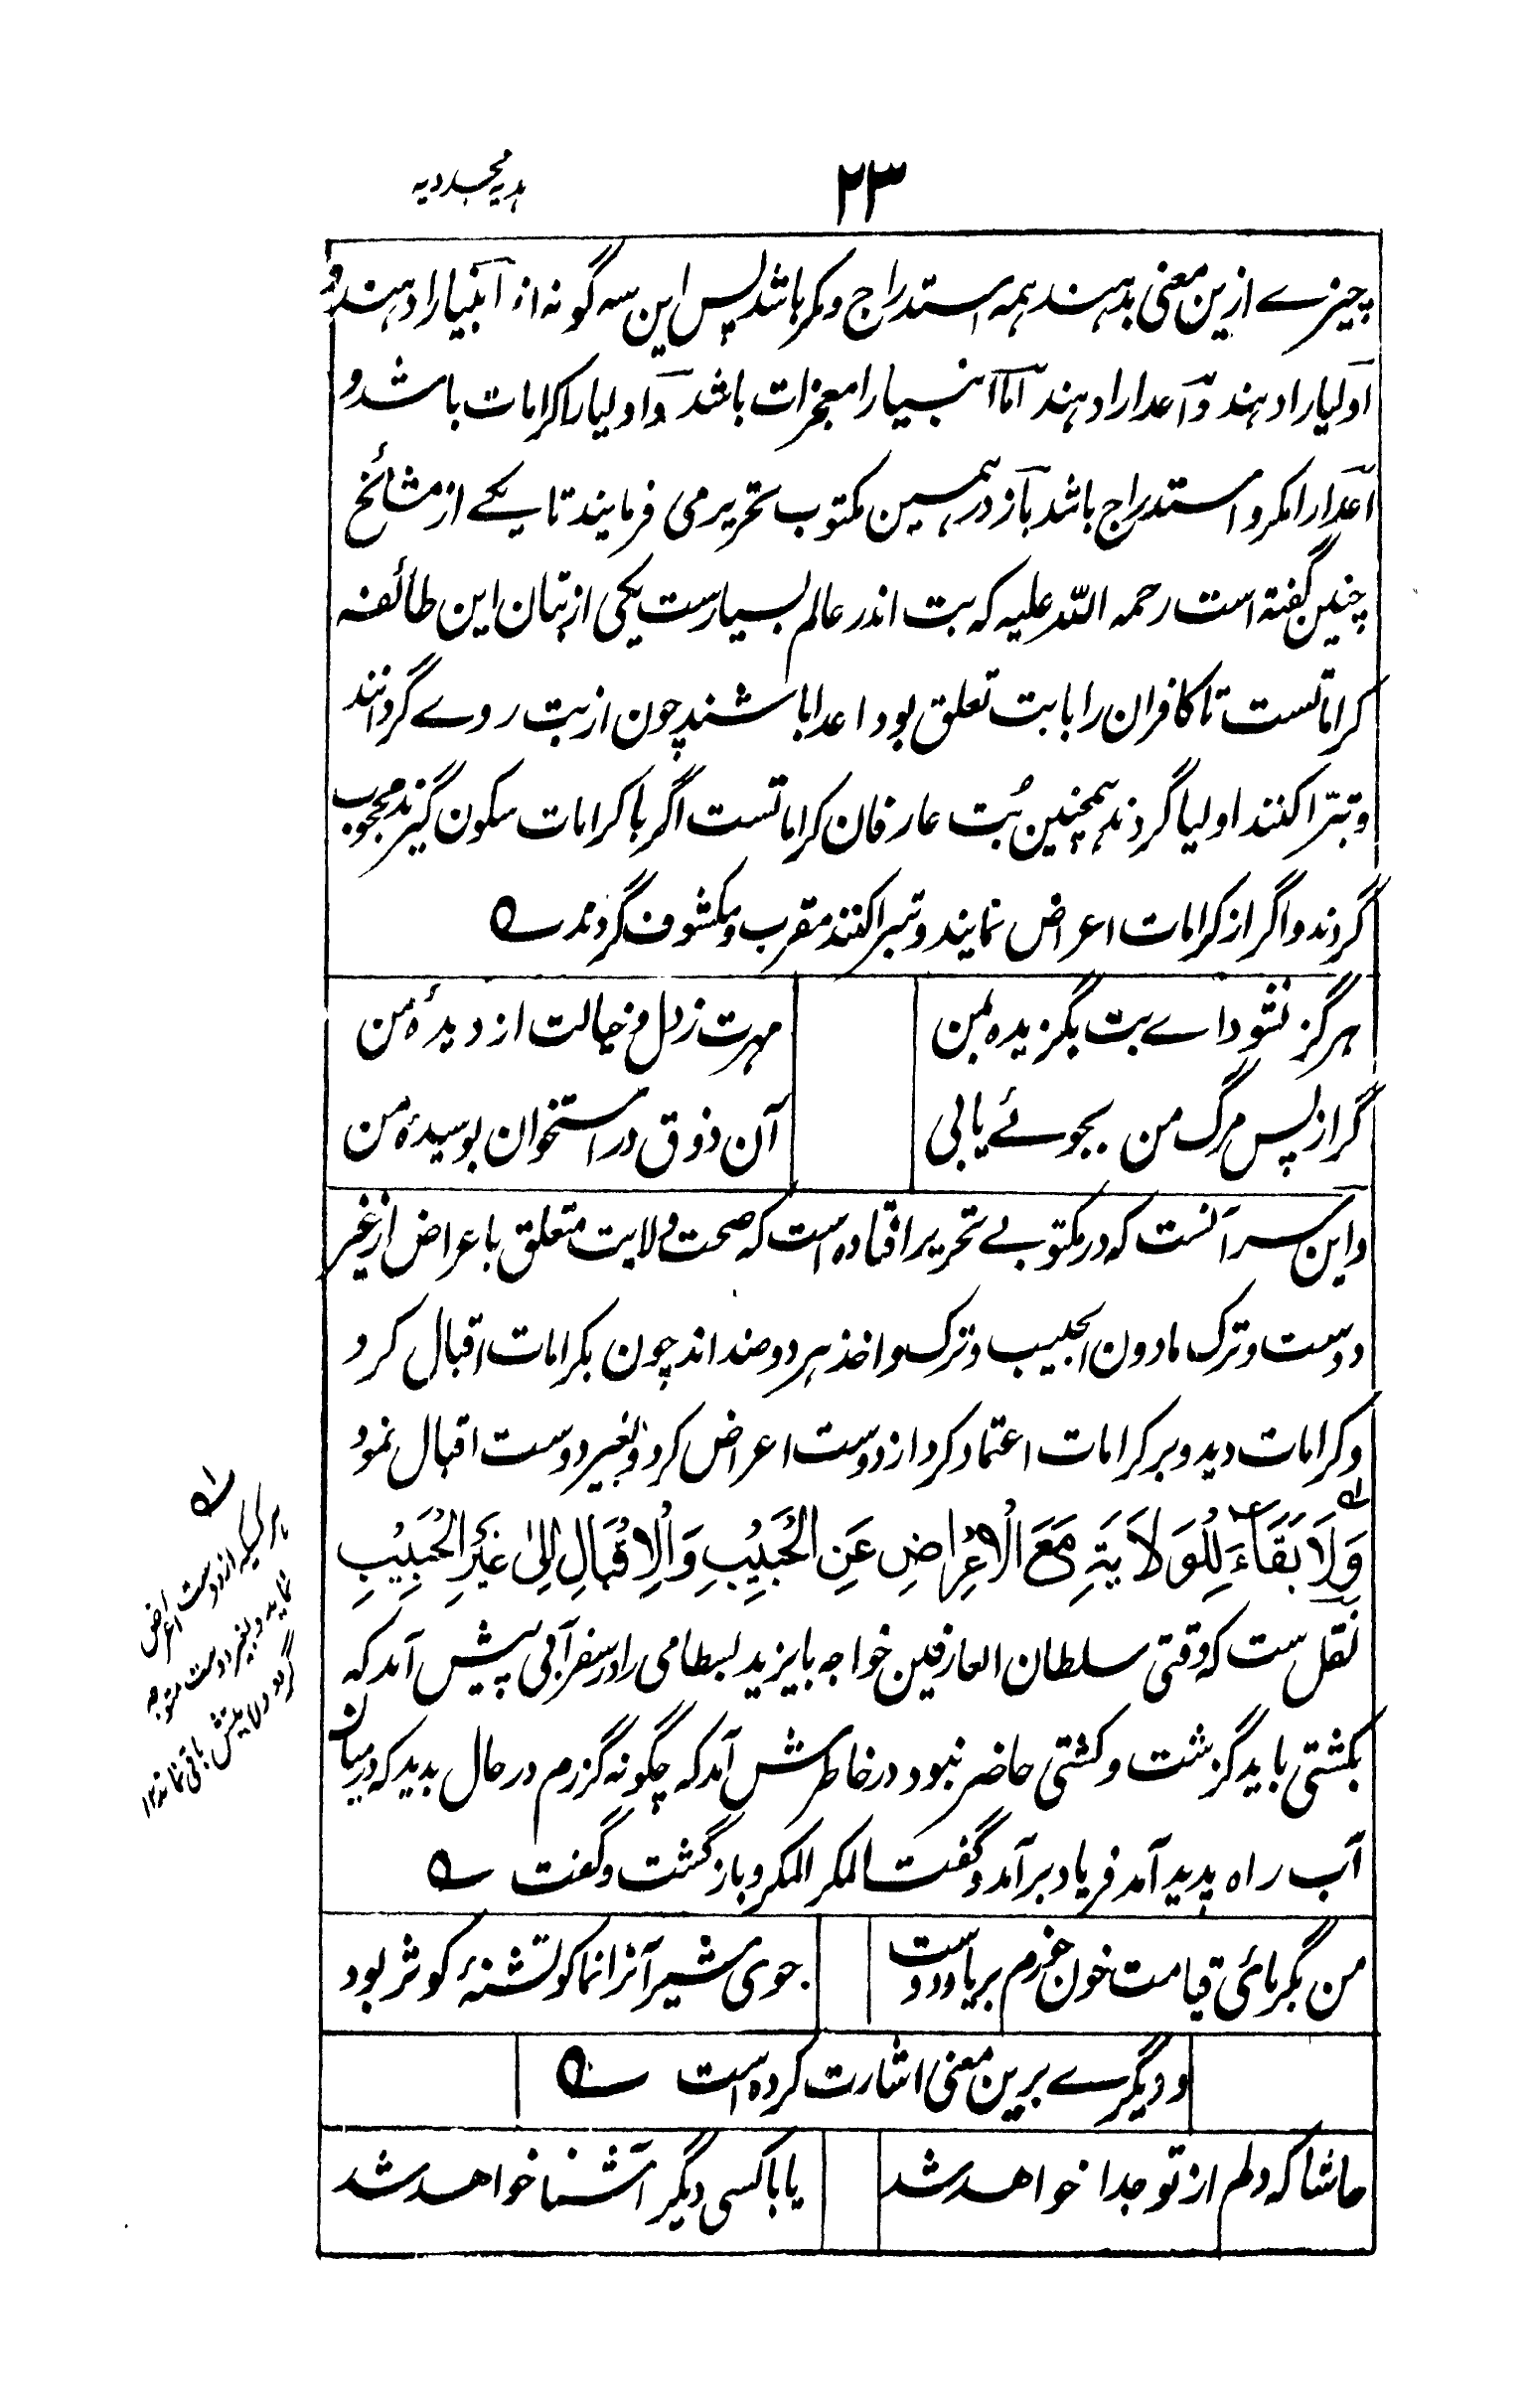 ۲۳
ہدیہ مجددیہ
چیزے ازین معنی بدہند ہمہ استدراج و مکر باشد پس این سہ گونہ انبیا را دہند و
اولیا را دہند و اعدا را دہند اما انبیا را معجزات باشد و اولیا را کرامات باشد و
اعدا را مکر و استدراج باشد باز در ہمین مکتوب تحریر می فرمایند تا یکے از مشائخ
چنین گفتہ است رحمہ اللہ علیہ کہ بت اندر عالم بسیارست یکی از بتان این طائفہ
کراماتست تا کافران را با بت تعلق بود اعدا باشند چون از بت روے گردانند
و تبرّا کنند اولیا گردند ہمچنین بُت عارفان کراماتست اگر با کرامات سکون گیرند محجوب
گردند و اگر از کرامات اعراض نمایند و تبرا کنند مقرب و مکشوف گردند ے
ہرگز نشود اے بت بگزیدہ من
مہرت ز دل و خیالت از دیدۂ من
گر از پس مرگ من بجوئے یابی
آن ذوق در استخوان بوسیدۂ من
و این سر آنست کہ در مکتوبے تحریر افتادہ است کہ صحت ولایت متعلق باعراض از غیر
دوست و ترک مادون الحبیب و ترک و اخذ ہر دو ضد اند چون بکرامات اقبال کرد
و کرامات دید و بر کرامات اعتماد کرد از دوست اعراض کرد و بغیر دوست اقبال نمود
وَلَا بَقَاءَ لِلْوَلَایَۃِ مَعَ الْاِعْرَاضِ عَنِ الْحَبِیْبِ وَالْاِقْبَالِ اِلیٰ غَیْرِ الْحَبِیْبِ
نقل ست کہ وقتی سلطان العارفین خواجہ بایزید بسطامی را در سفر آبی پیش آمد کہ
بکشتی باید گزشت و کشتی حاضر نبود در خاطرش آمد کہ چگونہ گزرم در حال بدید کہ درمیان
آب راہ پدید آمد فریاد برآمد و گفت المکر المکر و باز گشت و گفت ے
من بگرمائی قیامت خون خورم بر یاد دوست
جوی شیر آنرا نما کو تشنۂ کوثر بود
و دیگرے برین معنی اشارت کردہ است ے
حاشا کہ دلم از تو جدا خواهد شد
یا با کسی دیگر آشنا خواهد شد
ہر کسیکہ از دوست اعراض
نماید و بغیر دوست متوجہ
گردد ولایتش باقی نماند ۱۲